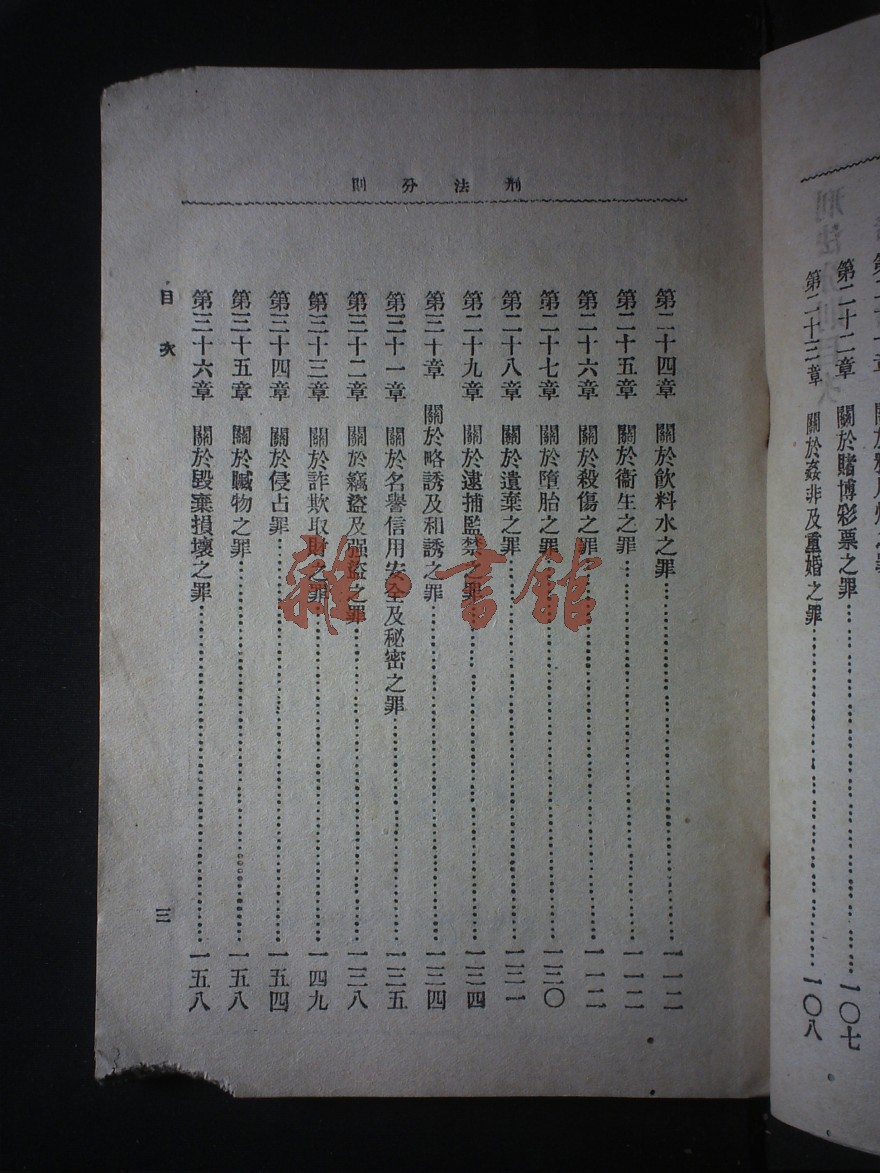 第二十二章 關於賭博彩票之罪……一〇七
第二十三章 關於姦非及重婚之罪……一〇八
刑法分則
第二十四章 關於飲料水之罪……一一二
第二十五章 關於衞生之罪……一一二
第二十六章 關於殺傷之罪……一一二
第二十七章 關於墮胎之罪……一三〇
第二十八章 關於遺棄之罪……一三一
第二十九章 關於逮捕監禁之罪……一三四
第三十章 關於略誘及和誘之罪……一三四
第三十一章 關於名譽信用安全及秘密之罪……一三五
第三十二章 關於竊盜及强盜之罪……一三八
第三十三章 關於詐欺取財之罪……一四九
第三十四章 關於侵占罪……一五四
第三十五章 關於贓物之罪……一五八
第三十六章 關於毀棄損壞之罪……一五八
目次
三
雜·書館